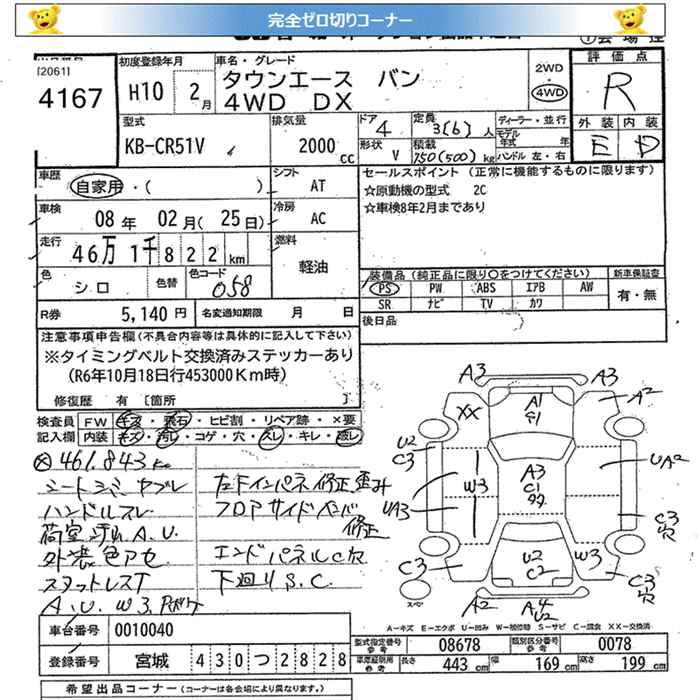 完全ゼロ切りコーナー
[2061]
4167
初度登録年月
H10 2月
車名・グレード
タウンエース バン
4WD DX
2WD
4WD
評価点
R
外装 内装
E D
型式
KB-CR51V
排気量
2000 cc
ドア 4
定員 3(6) 人
形状 V
積載 750(500) kg
ディーラー・並行
モデル年式 年
ハンドル 左・右
車歴
自家用・( )
シフト
AT
セールスポイント (正常に機能するものに限ります)
☆原動機の型式 2C
☆車検8年2月まであり
車検
08年 02月(25日)
冷房
AC
走行
46万1千822km
燃料
軽油
色
シロ
色替
色コード
058
装備品(純正品に限り○をつけてください)
PS PW ABS エアB AW
SR ナビ TV カワ
新車保証書
有・無
R券 5,140円
名変通知期限 月 日
後日品
注意事項申告欄(不具合内容等は具体的に記入して下さい)
※タイミングベルト交換済みステッカーあり
(R6年10月18日行453000Km時)
修復歴 有[箇所 ]
検査員記入欄
FW キズ・飛石・ヒビ割・リペア跡・×要
内装 キズ・汚レ・コゲ・穴・スレ・キレ・破レ
461.843 km
ハンドルスレ
荷室汚れ A.U.
外装色アセ
A.U. W3.
左Fインパネ修正歪み
フロアサイドメンバー修正
エンドパネルC穴
下廻りS.C.
A3
A3
A2
XX
A1
U2
C3
UA3
W3
A3
C1
UA2
C3
C3
U2
C2
W3
C3
A2
A4
U2
スペア
A-キズ E-エクボ U-凹み W-板修跡 S-サビ C-腐食 XX-交換済
車台番号 0010040
型式指定番号参考 08678
類別区分番号参考 0078
登録番号 宮城 430つ2828
長さ 443cm
幅 169cm
高さ 199cm
希望出品コーナー(コーナーは各会場により異なります。)